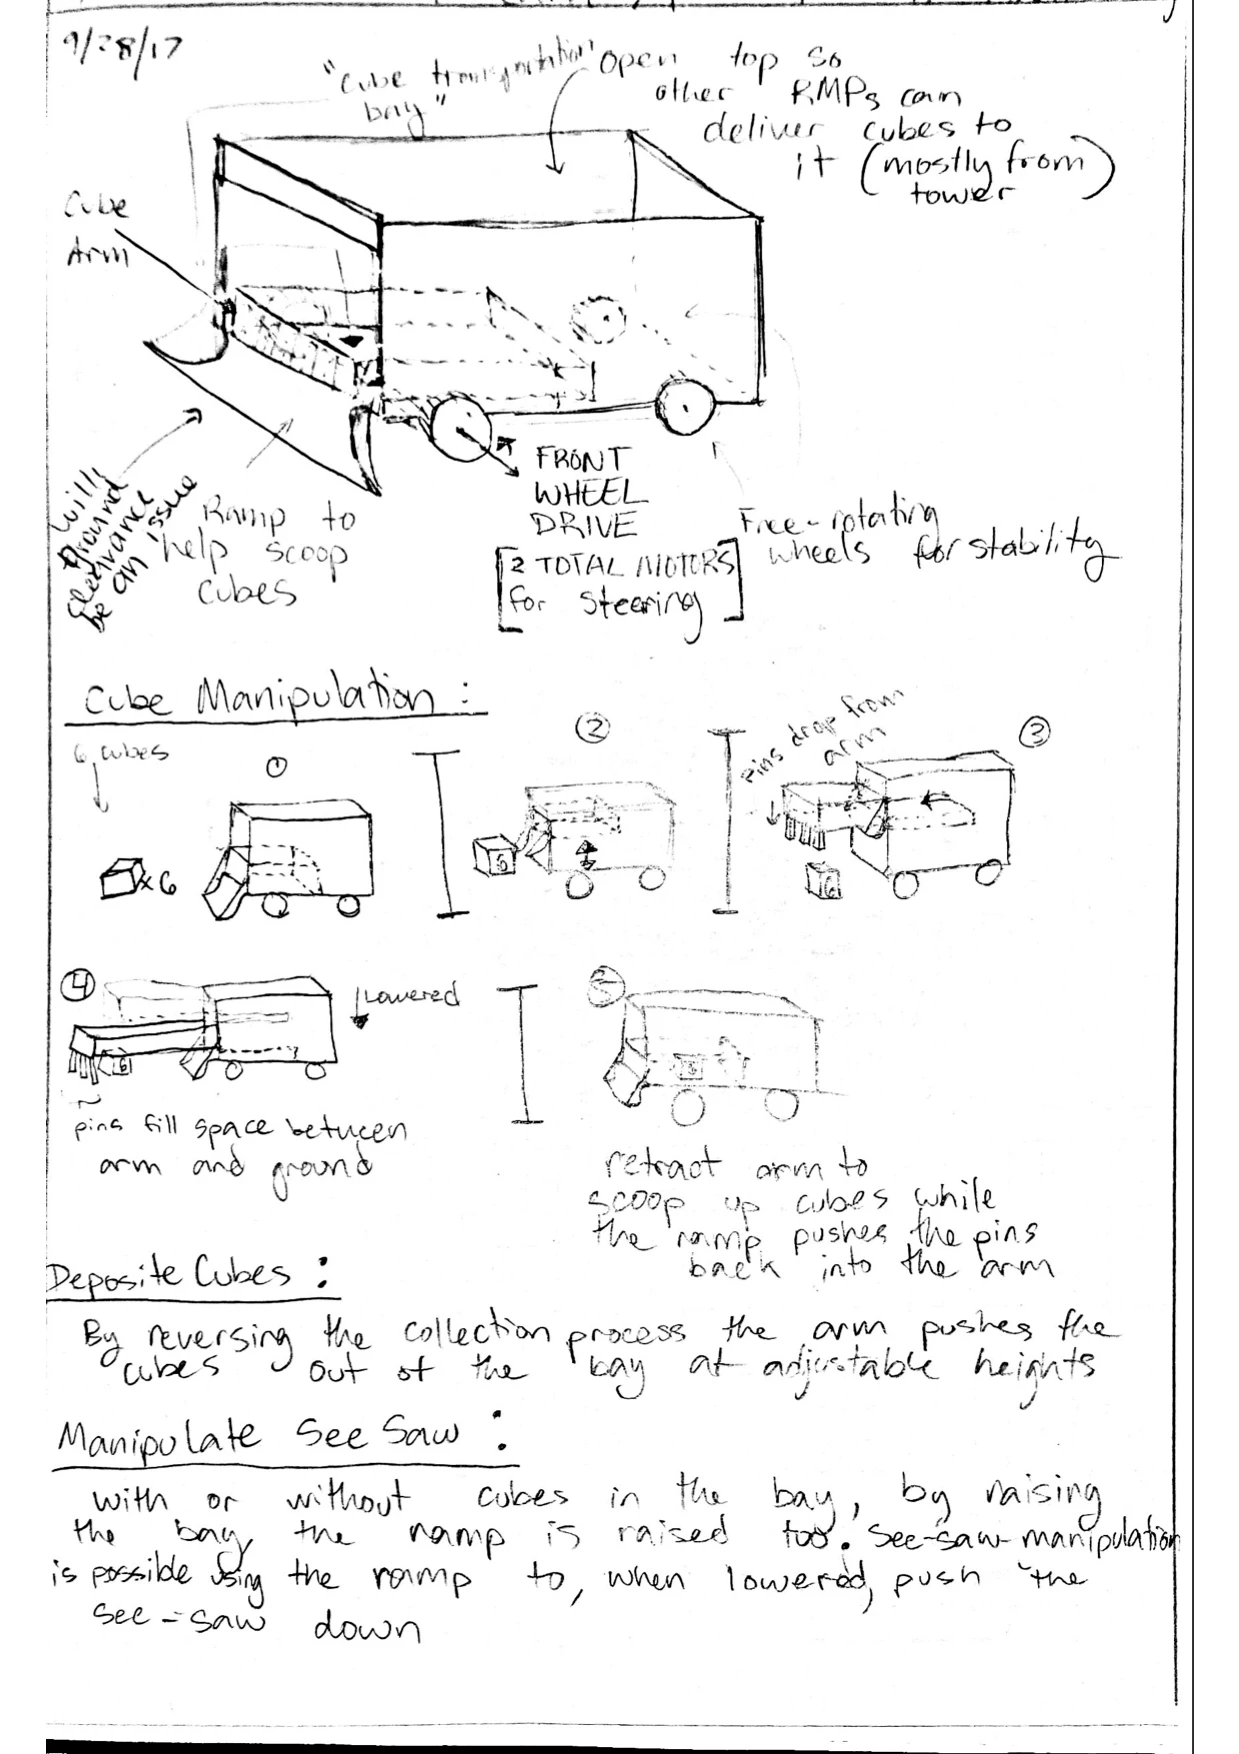 9/28/17
"Cube transportation
bay"
open top so
other RMPs can
deliver cubes to
it (mostly from)
tower
Cube
Arm
Will
ground
clearance
be an issue
Ramp to
help scoop
cubes
FRONT
WHEEL
DRIVE
[2 TOTAL MOTORS]
for steering
Free-rotating
wheels for stability
Cube Manipulation:
6 cubes
x6
1
2
6
3
pins drop from
arm
6
4
Lowered
6
pins fill space between
arm and ground
5
6
retract arm to
scoop up cubes while
the ramp pushes the pins
back into the arm
Deposite Cubes:
By reversing the collection process the arm pushes the
cubes out of the bay at adjustable heights
Manipulate See Saw:
with or without cubes in the bay, by raising
the bay, the ramp is raised too. See-saw-manipulation
is possible using the ramp to, when lowered, push the
see-saw down